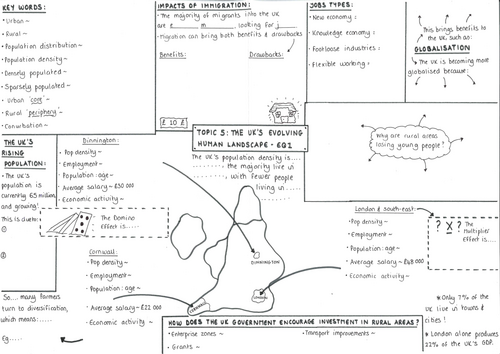 KEY WORDS
- Urban ~
- Rural ~
- Population distribution ~
- Population density ~
- Densely populated ~
- Sparsely populated ~
- Urban 'core' ~
- Rural 'periphery' ~
- Conurbation ~
IMPACTS OF IMMIGRATION:
- The majority of migrants into the UK
are e m looking for j
- Migration can bring both benefits & drawbacks
Benefits:
Drawbacks:
JOBS TYPES:
- New economy :
- Knowledge economy :
- Footloose industries :
- Flexible working :
This brings benefits to
the UK, such as:
GLOBALISATION
The UK is becoming more
globalised because:
£ 10 £
TOPIC 5: THE UK'S EVOLVING
HUMAN LANDSCAPE - EQ1
The UK's population density is....
the majority live in
, with fewer people
living in
Why are rural areas
losing young people?
THE UK'S
RISING
POPULATION:
- The UK's
population is
currently 65 million
and growing!
This is due to:
①
②
Dinnington:
- Pop density ~
- Employment ~
- Population: age ~
- Average salary ~ £30 000
- Economic activity ~
The Domino
Effect is.....
Cornwall:
- Pop density ~
- Employment ~
- Population: age ~
- Average salary ~ £22 000
- Economic activity ~
DINNINGTON
LONDON
CORNWALL
London & south-east:
- Pop density ~
- Employment ~
- Population: age ~
- Average salary ~ £48 000
- Economic activity ~
? X ?
The
Multiplier
Effect is.....
So... many farmers
turn to diversification,
which means:.....
Eg:....
HOW DOES THE UK GOVERNMENT ENCOURAGE INVESTMENT IN RURAL AREAS?
- Enterprise zones ~
- Transport improvements ~
- Grants ~
* Only 7% of the
UK live in towns &
cities !
* London alone produces
22% of the UK's GDP.